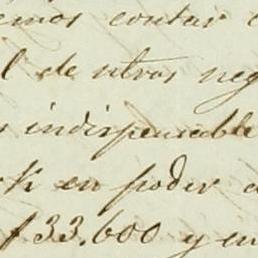 emos contar c
l de ntros neg
s indispensable
rk en poder d
$33.600 y en